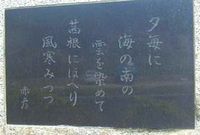 夕毎に
海の南の
雲を染めて
茜根にほへり
風寒みつつ